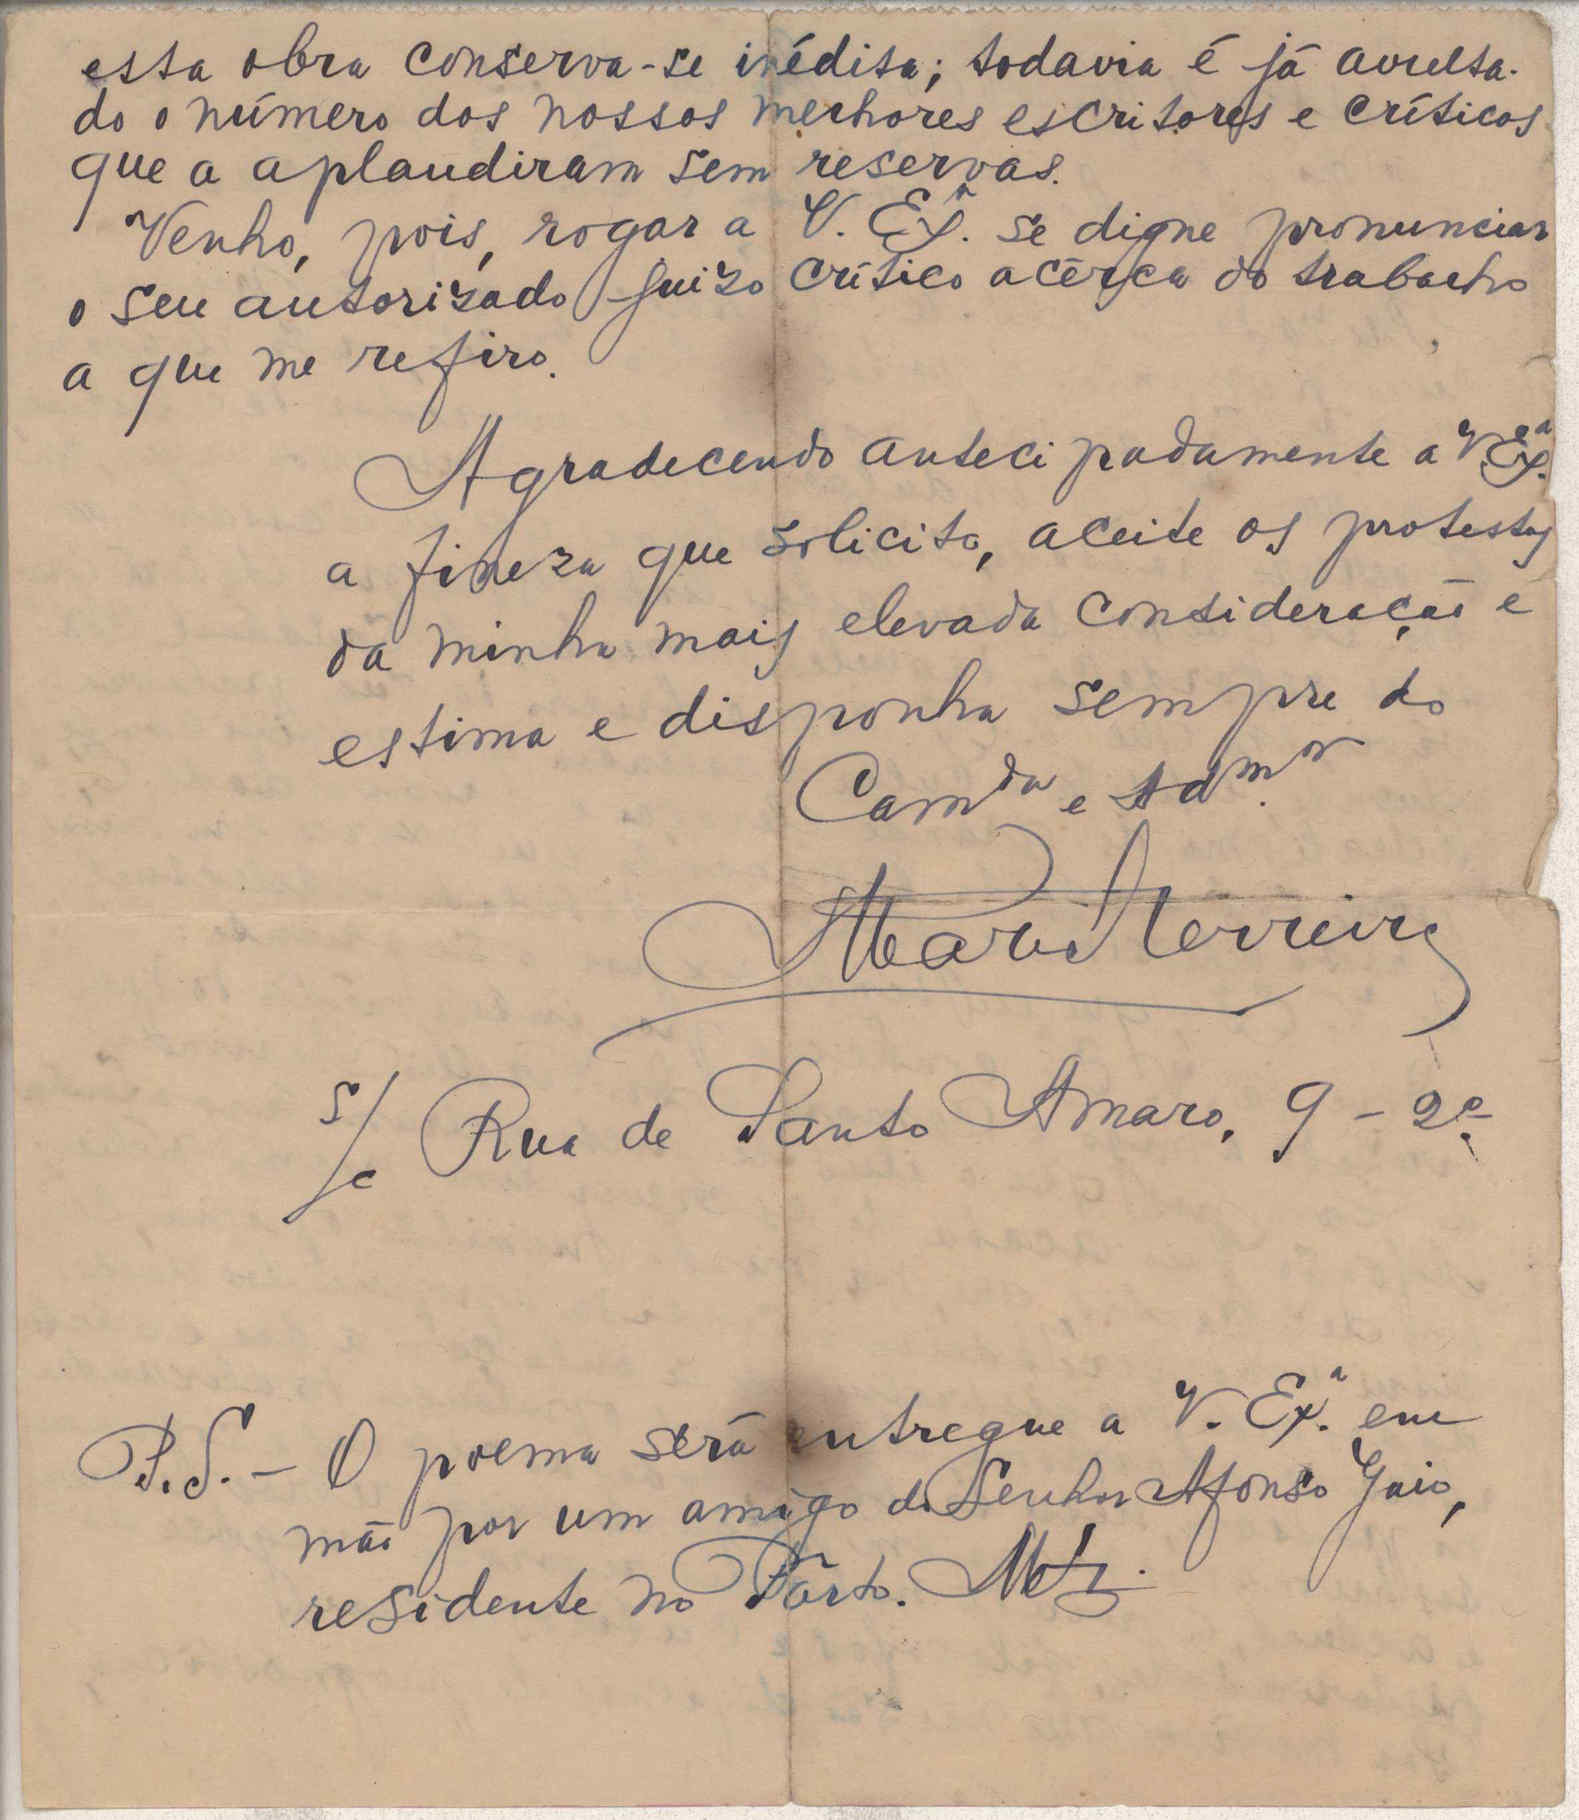 esta obra conserva-se inédita; todavia é já avulta-
do o número dos nossos melhores escritores e críticos
que a aplaudiram sem reservas.
Venho, pois, rogar a V. Ex.ª se digne pronunciar
o seu autorizado juizo crítico acêrca do trabalho
a que me refiro.
Agradecendo antecipadamente a V. Ex.ª
a fineza que solicito, aceite os protestos
da minha mais elevada consideração e
estima e disponha sempre do
Cam.da e Adm.or
Mario Ferreira
s/c Rua de Santo Amaro, 9 - 2º.
P.S. - O poema será entregue a V. Ex.ª em
mão por um amigo do Senhor Afonso Gaio,
residente no Pôrto. MF.